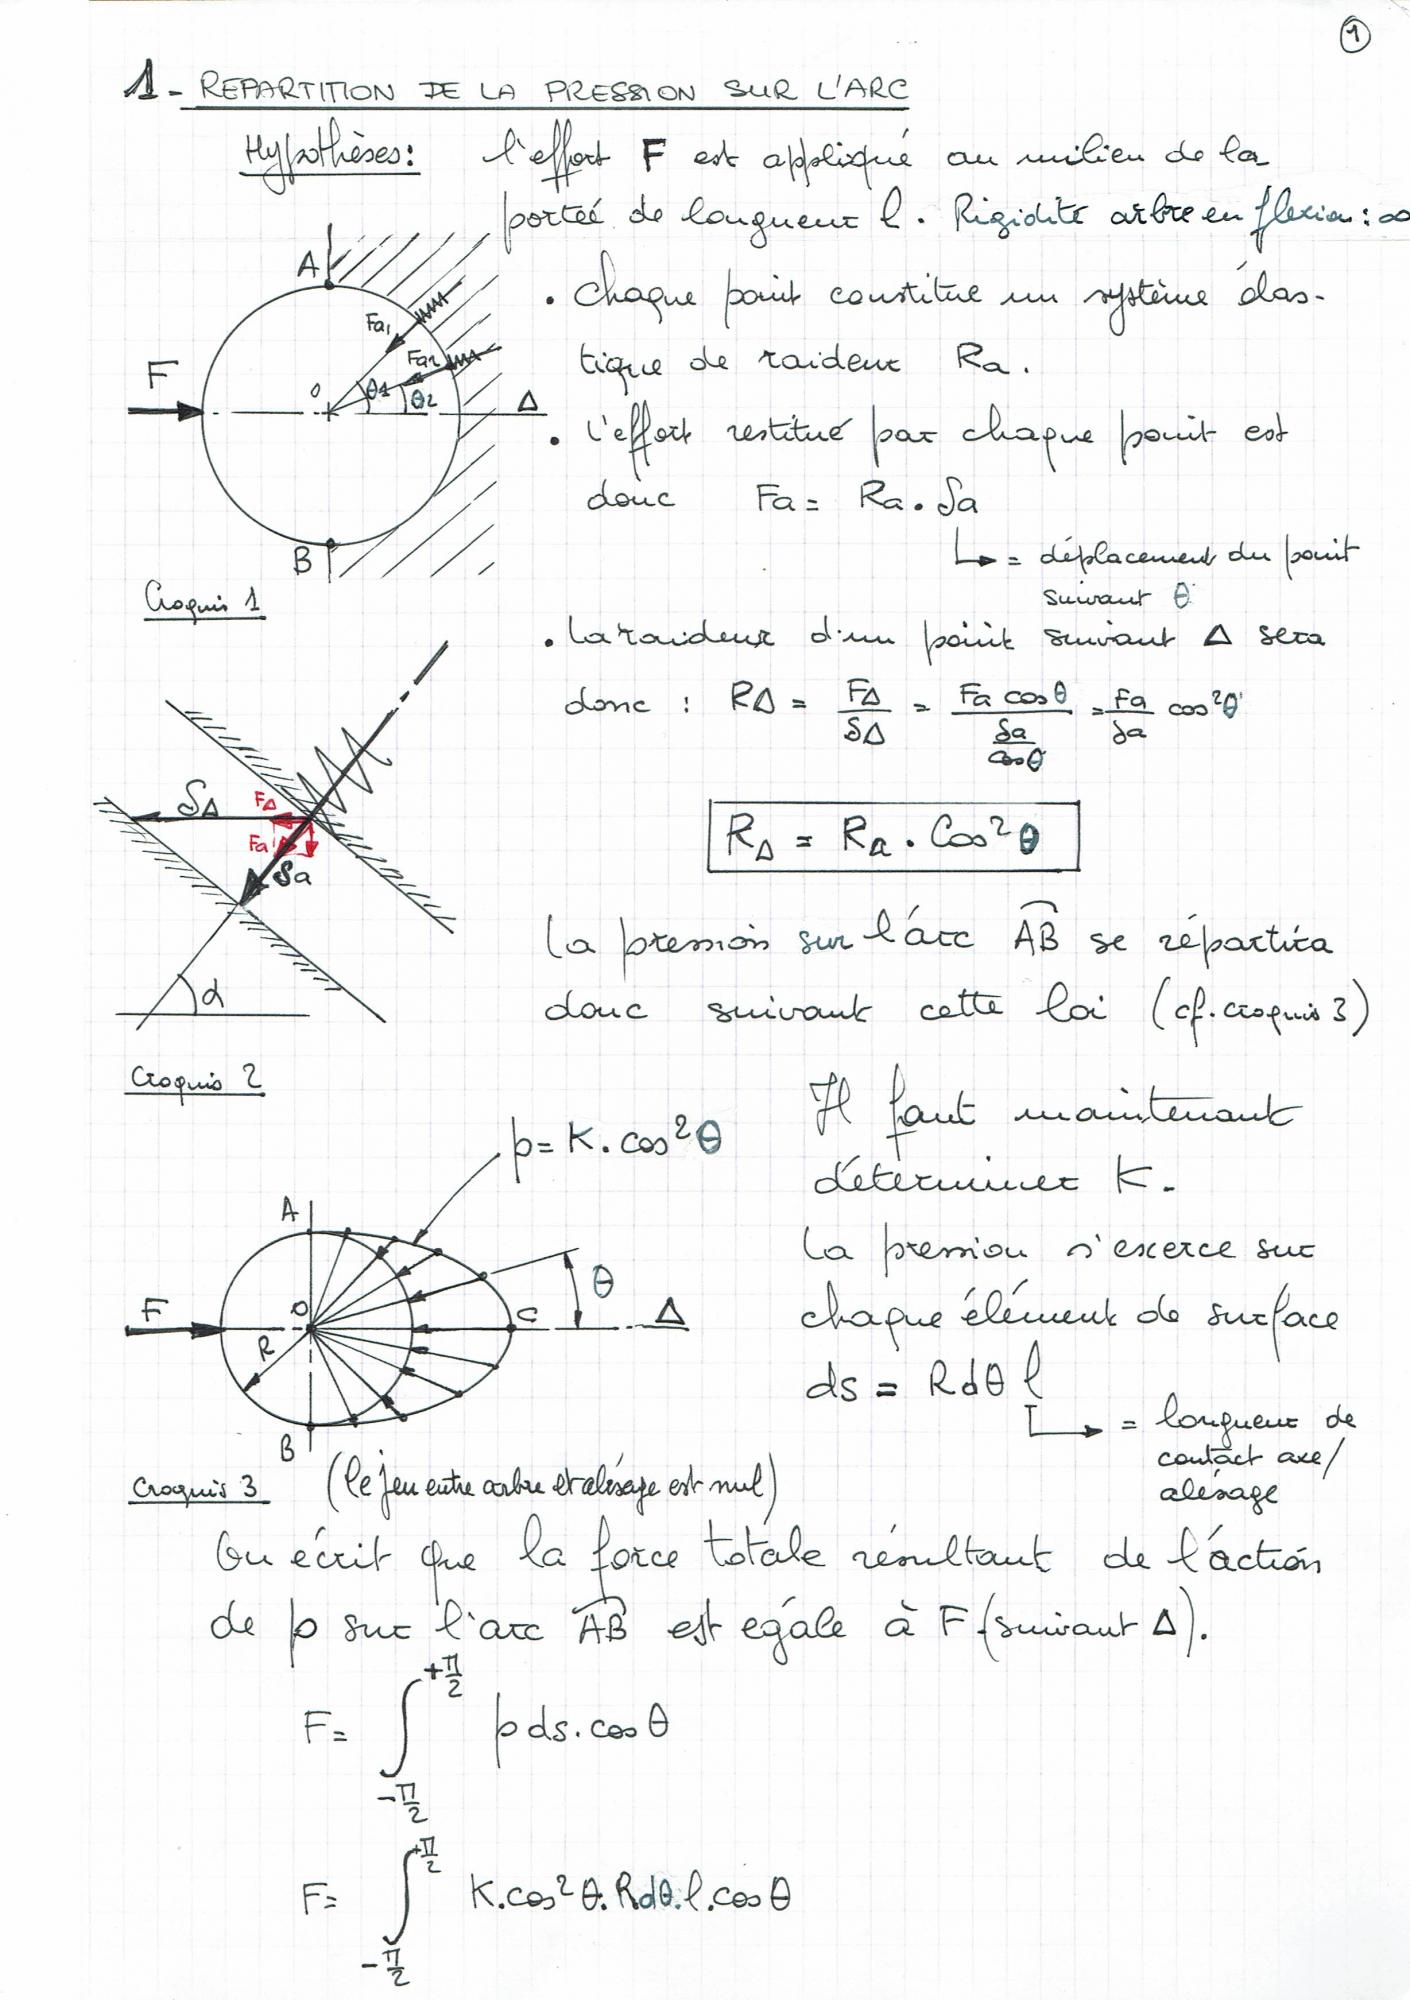 1
1 - REPARTITION DE LA PRESSION SUR L'ARC
Hypothèses: l'effort F est appliqué au milieu de la
porteé de longueur l. Rigidité arbre en flexion : ∞
A
Fa1
Fa2
F
O
θ1
θ2
Δ
B
Croquis 1
• Chaque point constitue un système élas-
tique de raideur Ra.
• L'effort restitué par chaque point est
donc Fa = Ra . δa
↳ = déplacement du point
suivant θ
• La raideur d'un point suivant Δ sera
donc : RΔ = FΔ/δΔ = Fa cosθ/(δa/cosθ) = Fa/δa cos²θ
RΔ = Ra . Cos²θ
δΔ
FΔ
Fa
δa
α
Croquis 2
La pression sur l'arc AB se répartira
donc suivant cette loi (cf. croquis 3)
p = K . cos²θ
A
F
O
R
C
θ
Δ
B
Croquis 3 (le jeu entre arbre et alésage est nul)
Il faut maintenant
déterminer K.
La pression s'exerce sur
chaque élément de surface
ds = R dθ l
↳ = longueur de
contact axe/
alésage
On écrit que la force totale résultant de l'action
de p sur l'arc AB est égale à F (suivant Δ).
F = ∫ -π/2 +π/2 p ds . cos θ
F = ∫ -π/2 +π/2 K.cos²θ.Rdθ.l.cosθ